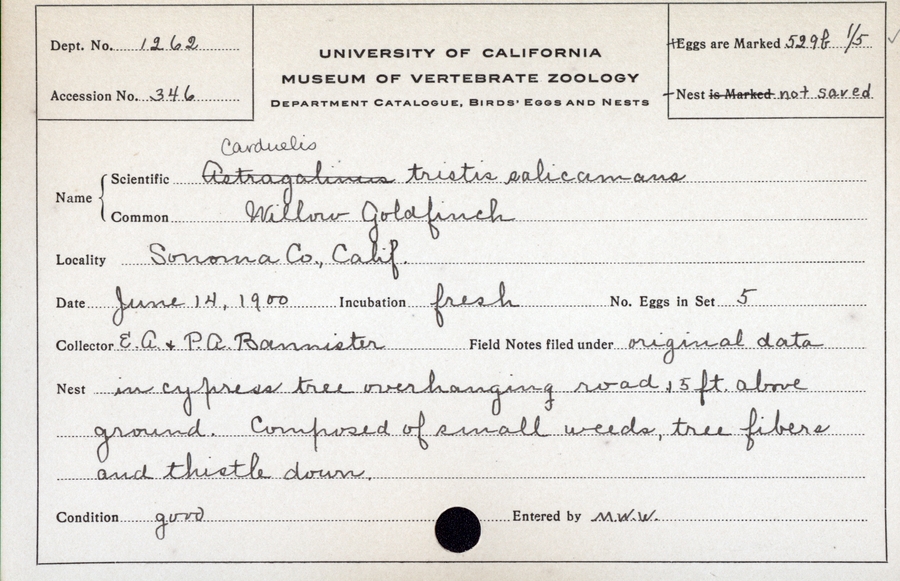 Dept. No. 1262
Accession No. 346
UNIVERSITY OF CALIFORNIA
MUSEUM OF VERTEBRATE ZOOLOGY
DEPARTMENT CATALOGUE, BIRDS' EGGS AND NESTS
Eggs are Marked 529b 1/5 ✓
Nest is Marked not saved
Carduelis
Name { Scientific Astragalinus tristis salicamans
Common Willow Goldfinch
Locality Sonoma Co., Calif.
Date June 14, 1900 Incubation fresh No. Eggs in Set 5
Collector E.A. & P.A. Bannister Field Notes filed under original data
Nest in cypress tree overhanging road, 15 ft. above
ground. Composed of small weeds, tree fibers
and thistle down.
Condition good Entered by M.W.W.